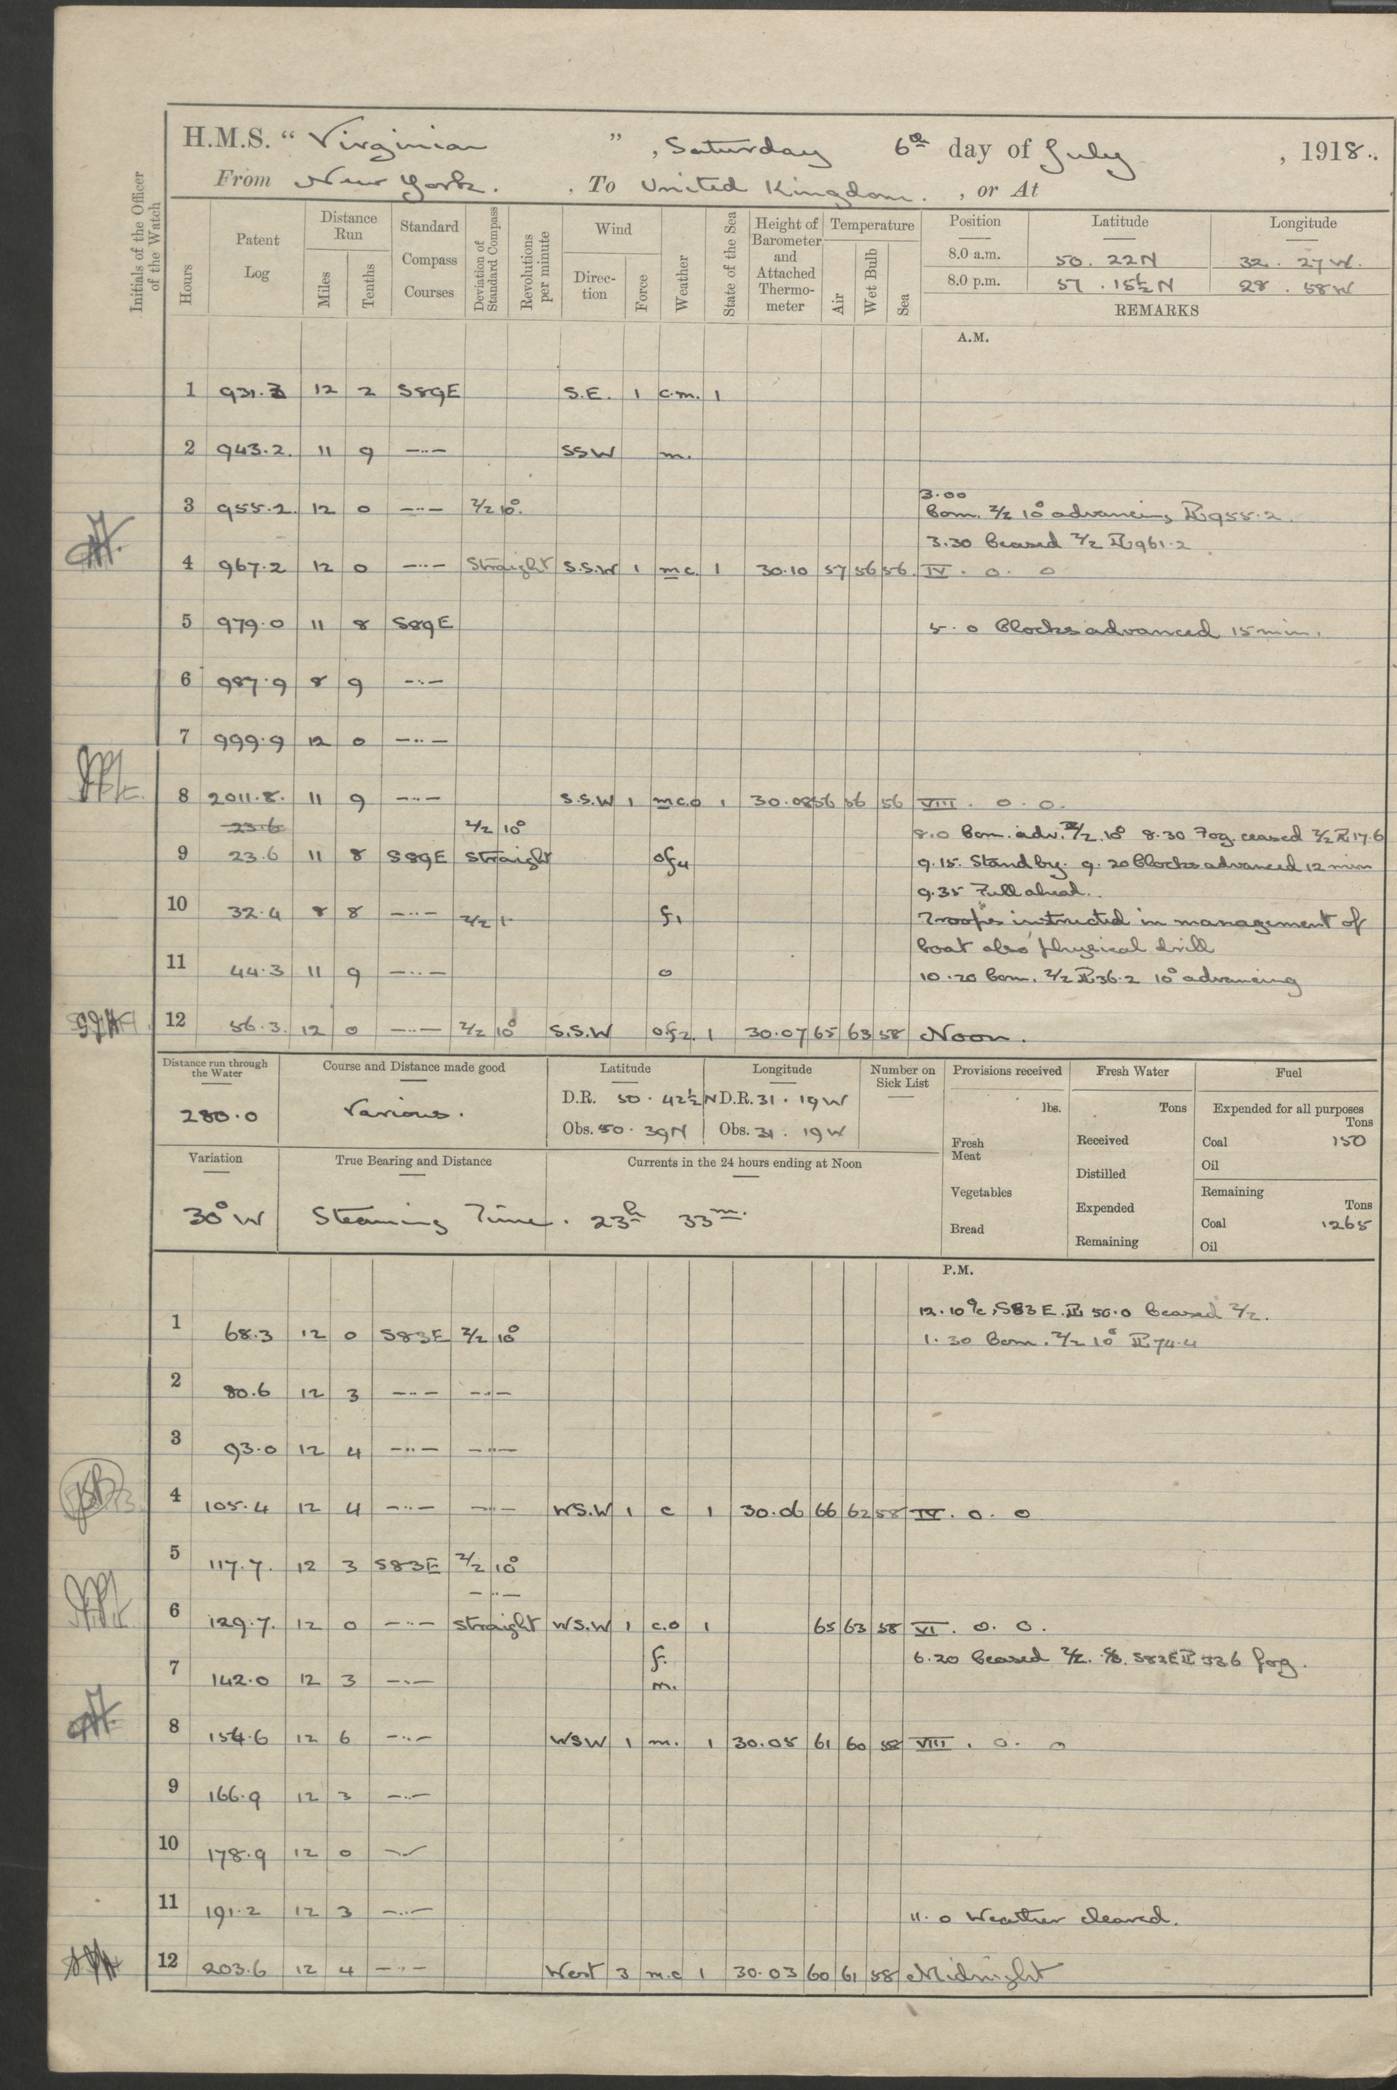 H.M.S. “ Virginian ” , Saturday 6th day of July , 1918.
From New York. , To United Kingdom. , or At
Initials of the Officer of the Watch
Hours
Patent Log
Distance Run
Miles
Tenths
Standard Compass Courses
Deviation of Standard Compass
Revolutions per minute
Wind
Direc-tion
Force
Weather
State of the Sea
Height of Barometer and Attached Thermo-meter
Temperature
Air
Wet Bulb
Sea
Position Latitude Longitude
8.0 a.m. 50 . 22 N 32 . 27 W.
8.0 p.m. 57 . 15½ N 28 . 58 W
REMARKS
A.M.
1 931.3 12 2 S89E S.E. 1 c.m. 1
2 943.2. 11 9 —··— SSW m.
3.00
3 955.2 12 0 —··— Z/Z 10° Com. Z/Z 10° advancing PL 955.2.
3.30 Ceased Z/Z PL 961.2
4 967.2 12 0 —··— Straight S.S.W 1 m c. 1 30.10 57 56 56 IV . 0 . 0
5 979.0 11 8 S89E 5. 0 Clocks advanced 15 min.
6 987.9 8 9 —··—
7 999.9 12 0 —··—
8 2011.8. 11 9 —··— S.S.W 1 m c.o 1 30.08 56 56 56 VIII . 0 . 0.
23.6 Z/Z 10° 8.0 Com. adv. Z/Z 10° 8.30 Fog ceased Z/Z PL 17.6
9 23.6 11 8 S89E Straight of4 9.15. Stand by. 9.20 Clocks advanced 12 min
9.35 Full ahead.
10 32.4 8 8 —··— Z/Z 1· f1 Troops instructed in management of
boat also physical drill
11 44.3 11 9 —··— o 10.20 Com. Z/Z PL 36.2 10° advancing
12 56.3. 12 0 —··— Z/Z 10° S.S.W of2. 1 30.07 65 63 58 Noon.
Distance run through the Water
280.0
Course and Distance made good
Various.
Latitude Longitude
D.R. 50 . 42½ N D.R. 31 . 19 W
Obs. 50 . 39 N Obs. 31 . 19 W
Number on Sick List
Provisions received
lbs.
Fresh Meat
Vegetables
Bread
Fresh Water
Tons
Received
Distilled
Expended
Remaining
Fuel
Expended for all purposes
Tons
Coal 150
Oil
Remaining
Tons
Coal 1265
Oil
Variation
30° W
True Bearing and Distance
Currents in the 24 hours ending at Noon
Steaming Time. 23h 33m.
P.M.
12.10 a/c S83E. PL 50.0 Ceased Z/Z.
1 68.3 12 0 S83E Z/Z 10° 1. 30 Com. Z/Z 10° PL 74.4
2 80.6 12 3 —··— —··—
3 93.0 12 4 —··— —··—
4 105.4 12 4 —··— —··— WS.W 1 c 1 30.06 66 62 58 IV . 0 . 0
5 117.7. 12 3 S83E Z/Z 10°
—··—
6 129.7. 12 0 —··— Straight WS.W 1 c.o 1 65 63 58 VI . 0. 0.
f. 6.20 Ceased Z/Z. S82E PL 33.6 fog.
7 142.0 12 3 —··— m.
8 154.6 12 6 —··— WSW 1 m. 1 30.05 61 60 58 VIII . 0. 0
9 166.9 12 3 —··—
10 178.9 12 0 —··—
11 191.2 12 3 —··— 11. 0 Weather cleared.
12 203.6 12 4 —··— West 3 m.c 1 30.03 60 61 58 Midnight